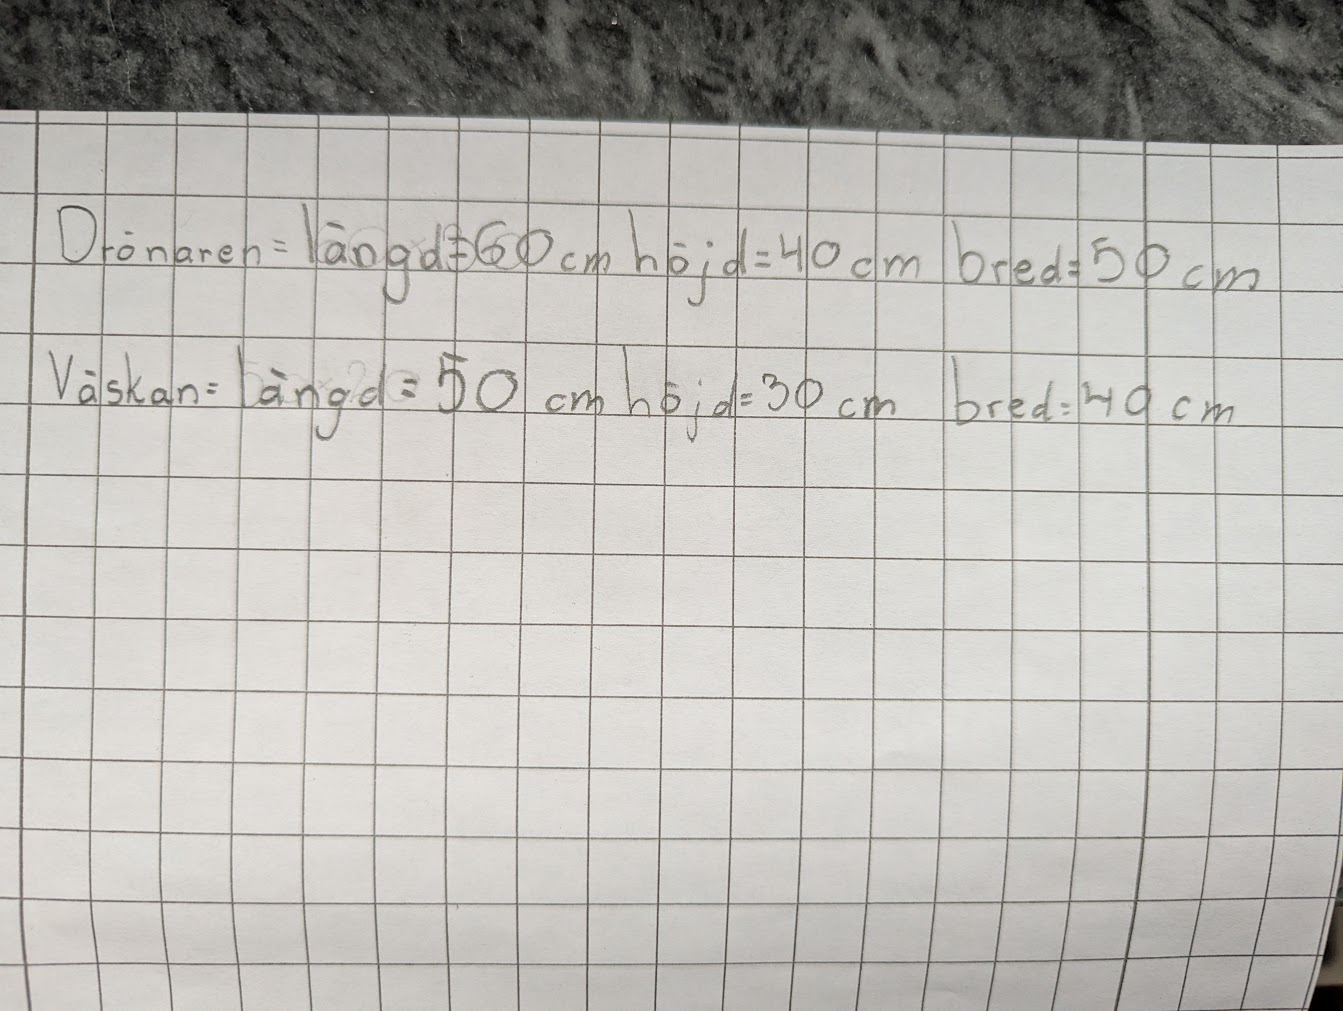 Drönaren = längd=60 cm höjd=40 cm bred=50 cm
Väskan= längd=50 cm höjd=30 cm bred=40 cm